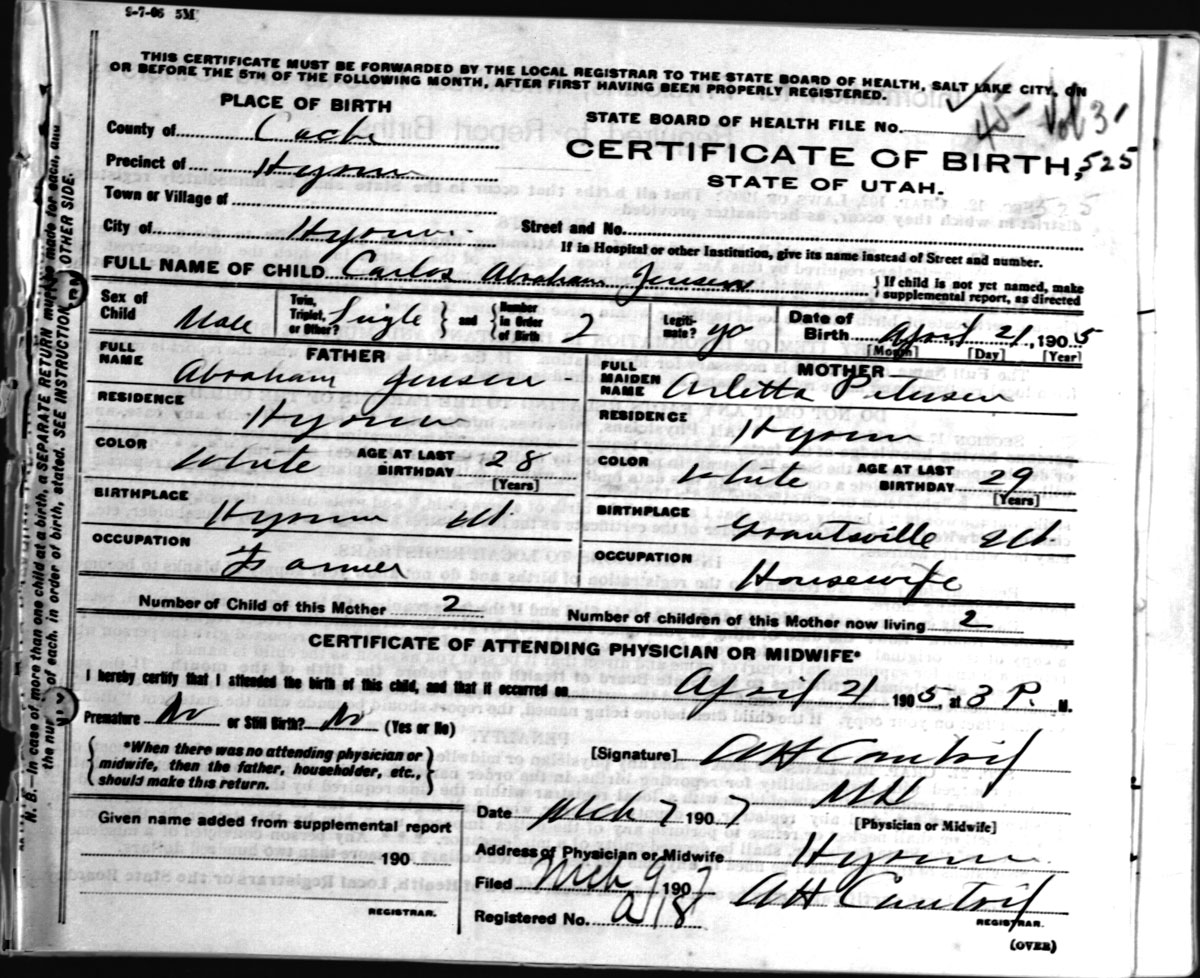 9-7-06 5M
THIS CERTIFICATE MUST BE FORWARDED BY THE LOCAL REGISTRAR TO THE STATE BOARD OF HEALTH, SALT LAKE CITY, ON
OR BEFORE THE 5TH OF THE FOLLOWING MONTH, AFTER FIRST HAVING BEEN PROPERLY REGISTERED.
PLACE OF BIRTH
STATE BOARD OF HEALTH FILE NO. 45 Vol 3
County of Cache
CERTIFICATE OF BIRTH, 525
Precinct of Hyrum
STATE OF UTAH.
Town or Village of
City of Hyrum Street and No.
If in Hospital or other Institution, give its name instead of Street and number.
FULL NAME OF CHILD Carlos Abraham Jensen } If child is not yet named, make supplemental report, as directed
Sex of Child Male Twin, Triplet, or Other? Single } and { Number in Order of Birth 2 Legiti-mate? yes Date of Birth April 21, 1905
[Month] [Day] [Year]
FATHER MOTHER
FULL NAME Abraham Jensen FULL MAIDEN NAME Arletta Petersen
RESIDENCE Hyrum RESIDENCE Hyrum
COLOR White AGE AT LAST BIRTHDAY 28 [Years] COLOR White AGE AT LAST BIRTHDAY 29 [Years]
BIRTHPLACE Hyrum Ut BIRTHPLACE Grantsville Ut
OCCUPATION Farmer OCCUPATION Housewife
Number of Child of this Mother 2 Number of children of this Mother now living 2
CERTIFICATE OF ATTENDING PHYSICIAN OR MIDWIFE*
I hereby certify that I attended the birth of this child, and that it occurred on April 21 1905, at 3 P. M.
Premature No or Still Birth? No (Yes or No)
{ *When there was no attending physician or midwife, then the father, householder, etc., should make this return. }
[Signature] A H Cantril
MD
Date Mch 7 1907 [Physician or Midwife]
Given name added from supplemental report
190
REGISTRAR.
Address of Physician or Midwife Hyrum
Filed Mch 9 1907 A H Cantril
REGISTRAR.
Registered No.
(OVER)
N. B.—In case of more than one child at a birth, a SEPARATE RETURN must be made for each, and
of each, in order of birth, stated. SEE INSTRUCTION
OTHER SIDE.